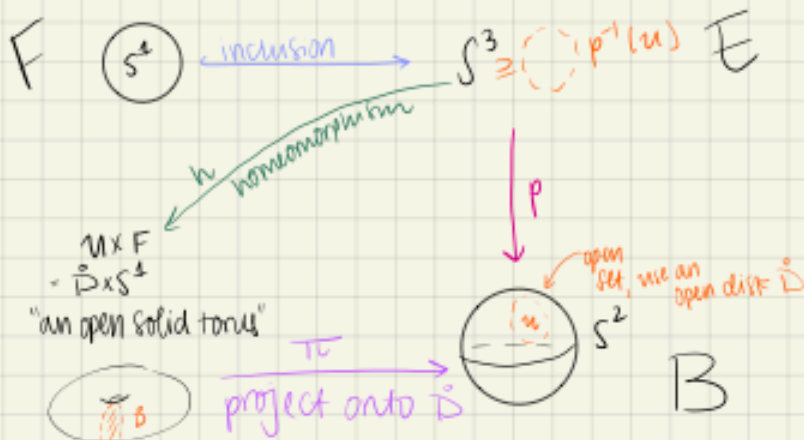 F S¹ inclusion S³ ⊇ p⁻¹(u) E
h homeomorphism
p
u x F
= D̊ x S¹
"an open solid torus"
open
set, use an
open disk D̊
u S²
π
project onto D̊
B
B